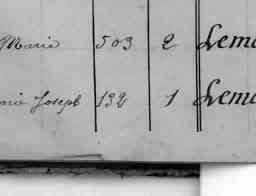 Marie 503 2 Lem
Joseph 132 1 Lem